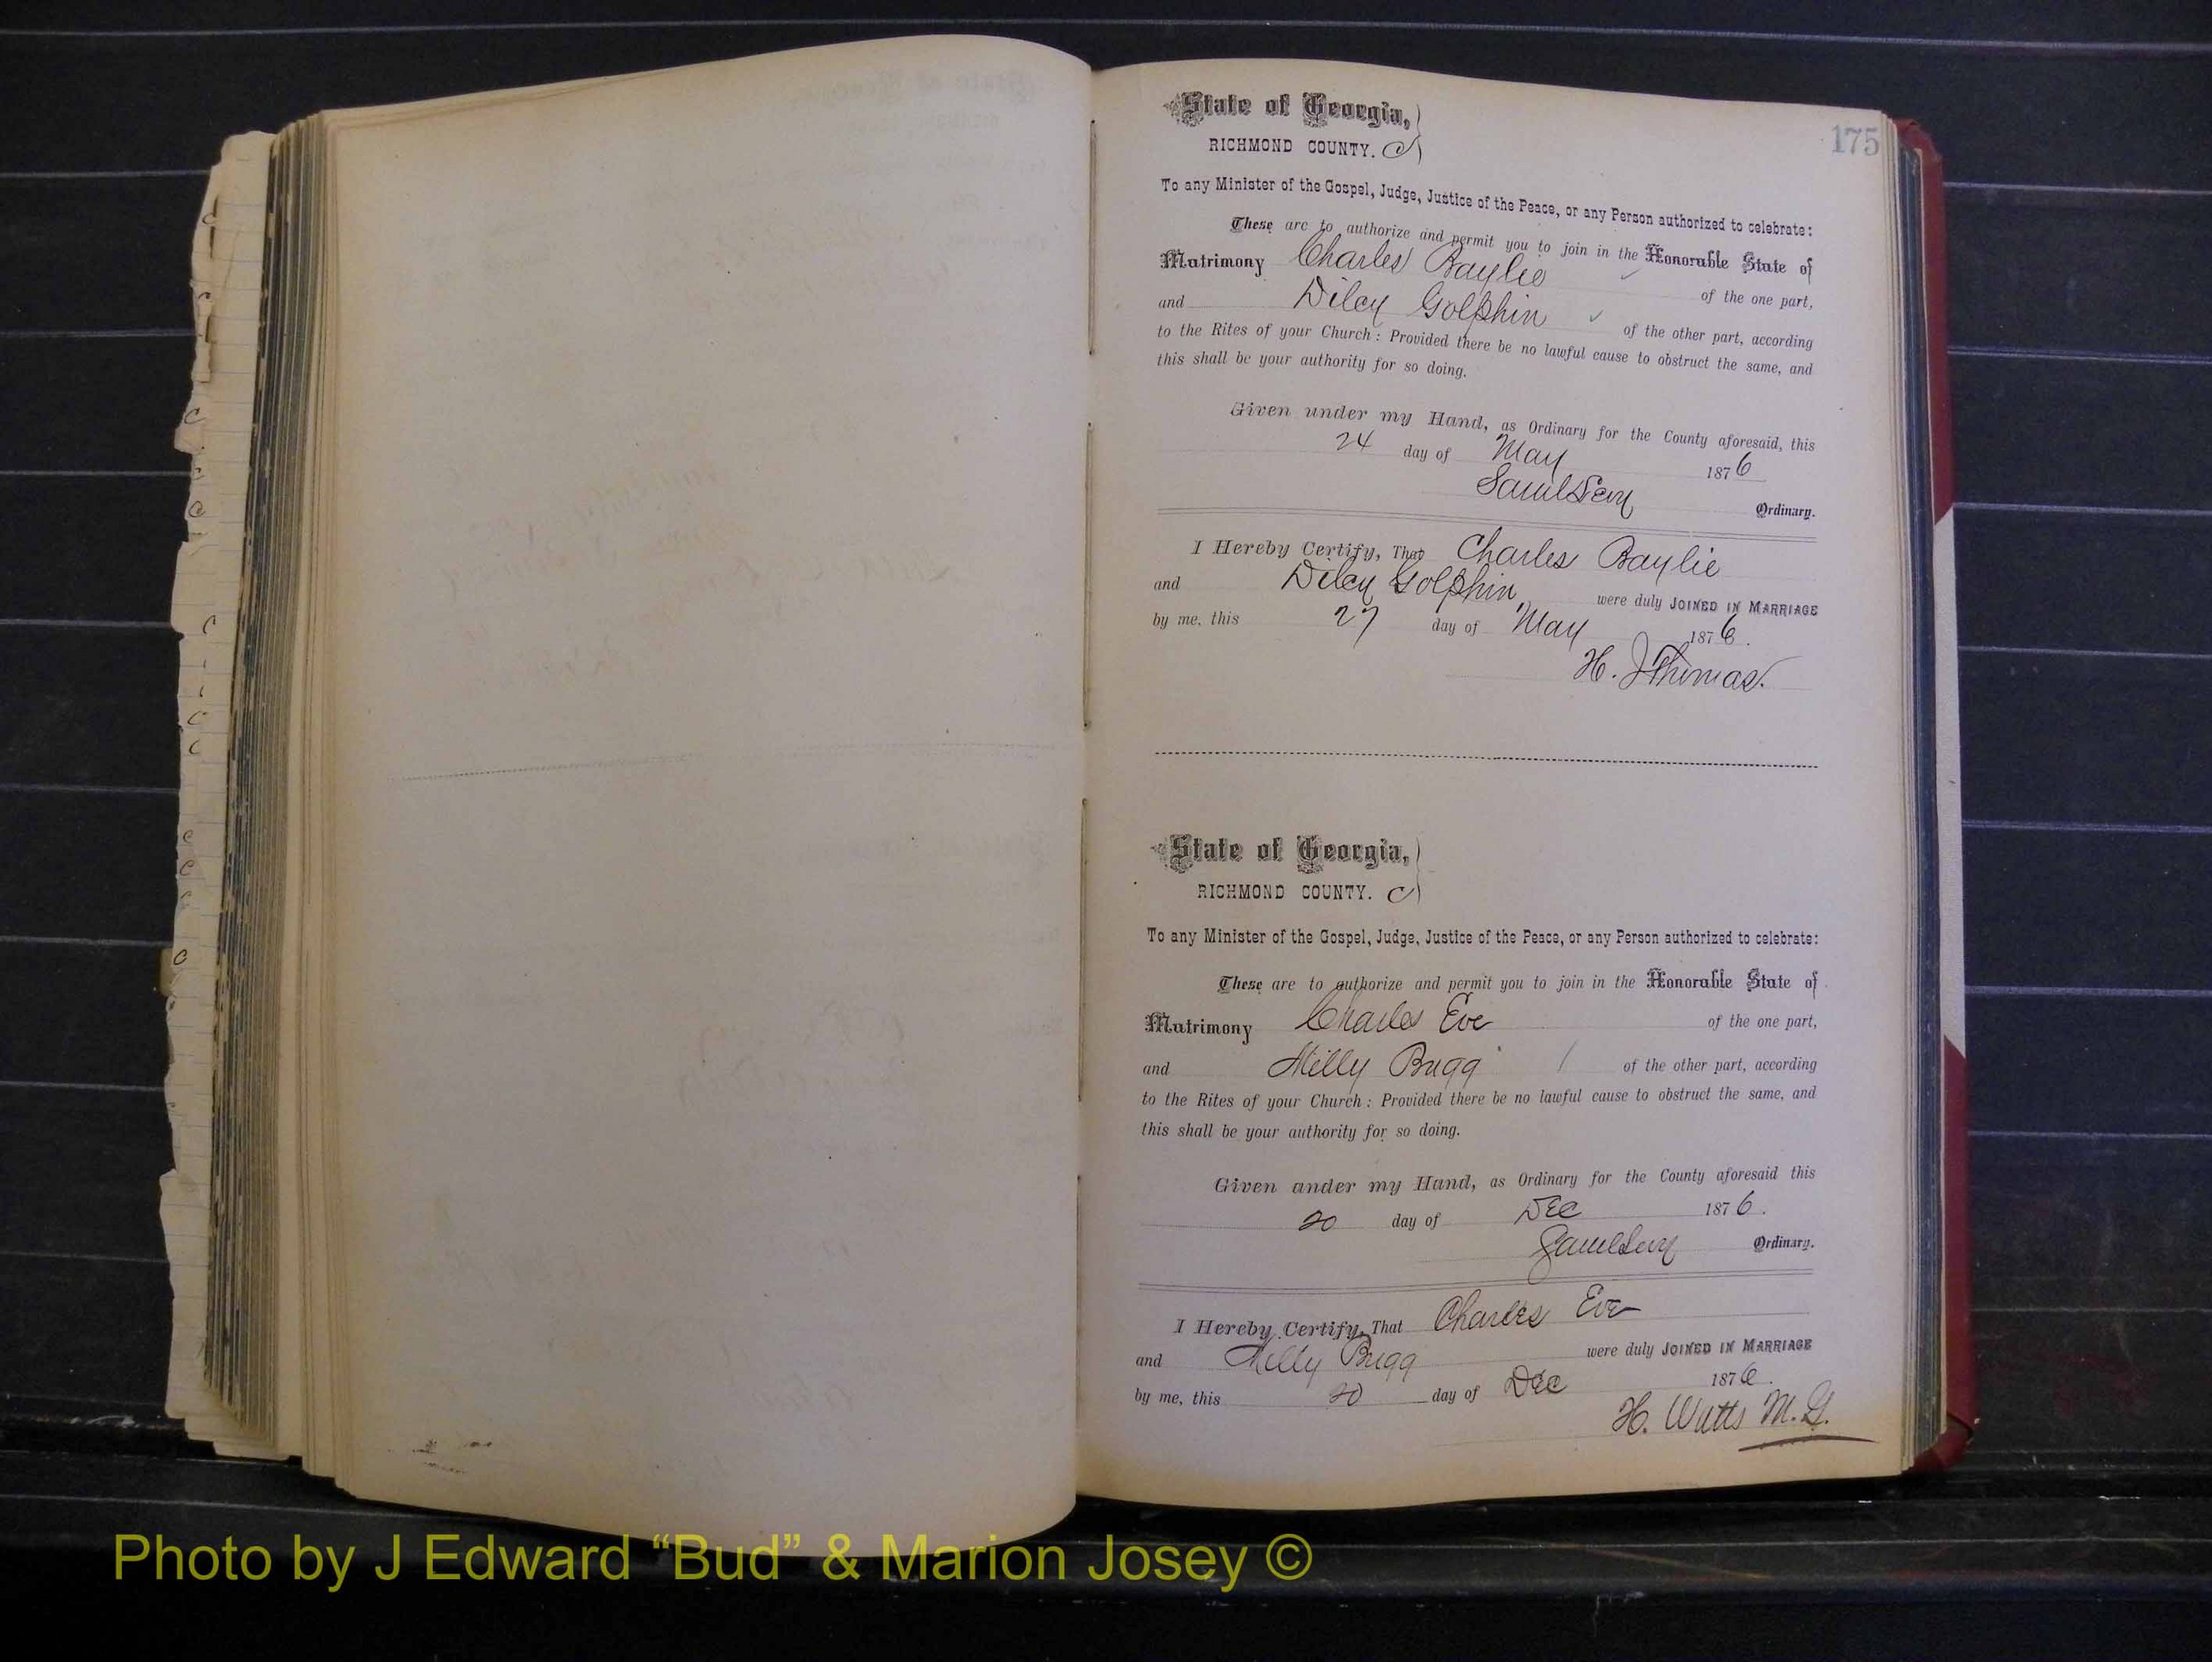 175
State of Georgia,
RICHMOND COUNTY. C
To any Minister of the Gospel, Judge, Justice of the Peace, or any Person authorized to celebrate:
These are to authorize and permit you to join in the Honorable State of
Matrimony Charles Baylie of the one part,
and Dilcy Golphin of the other part, according
to the Rites of your Church: Provided there be no lawful cause to obstruct the same, and
this shall be your authority for so doing.
Given under my Hand, as Ordinary for the County aforesaid, this
24 day of May 1876
Saml Levy Ordinary.
I Hereby Certify, That Charles Baylie
and Dilcy Golphin were duly JOINED IN MARRIAGE
by me, this 27 day of May 1876.
H. J Thomas.
State of Georgia,
RICHMOND COUNTY. C
To any Minister of the Gospel, Judge, Justice of the Peace, or any Person authorized to celebrate:
These are to authorize and permit you to join in the Honorable State of
Matrimony Charles Eve of the one part,
and Milly Bugg of the other part, according
to the Rites of your Church: Provided there be no lawful cause to obstruct the same, and
this shall be your authority for so doing.
Given under my Hand, as Ordinary for the County aforesaid this
20 day of Dec 1876.
Saml Levy Ordinary.
I Hereby Certify, That Charles Eve
and Milly Bugg were duly JOINED IN MARRIAGE
by me, this 20 day of Dec 1876.
H. Watts M. G.
Photo by J Edward “Bud” & Marion Josey ©